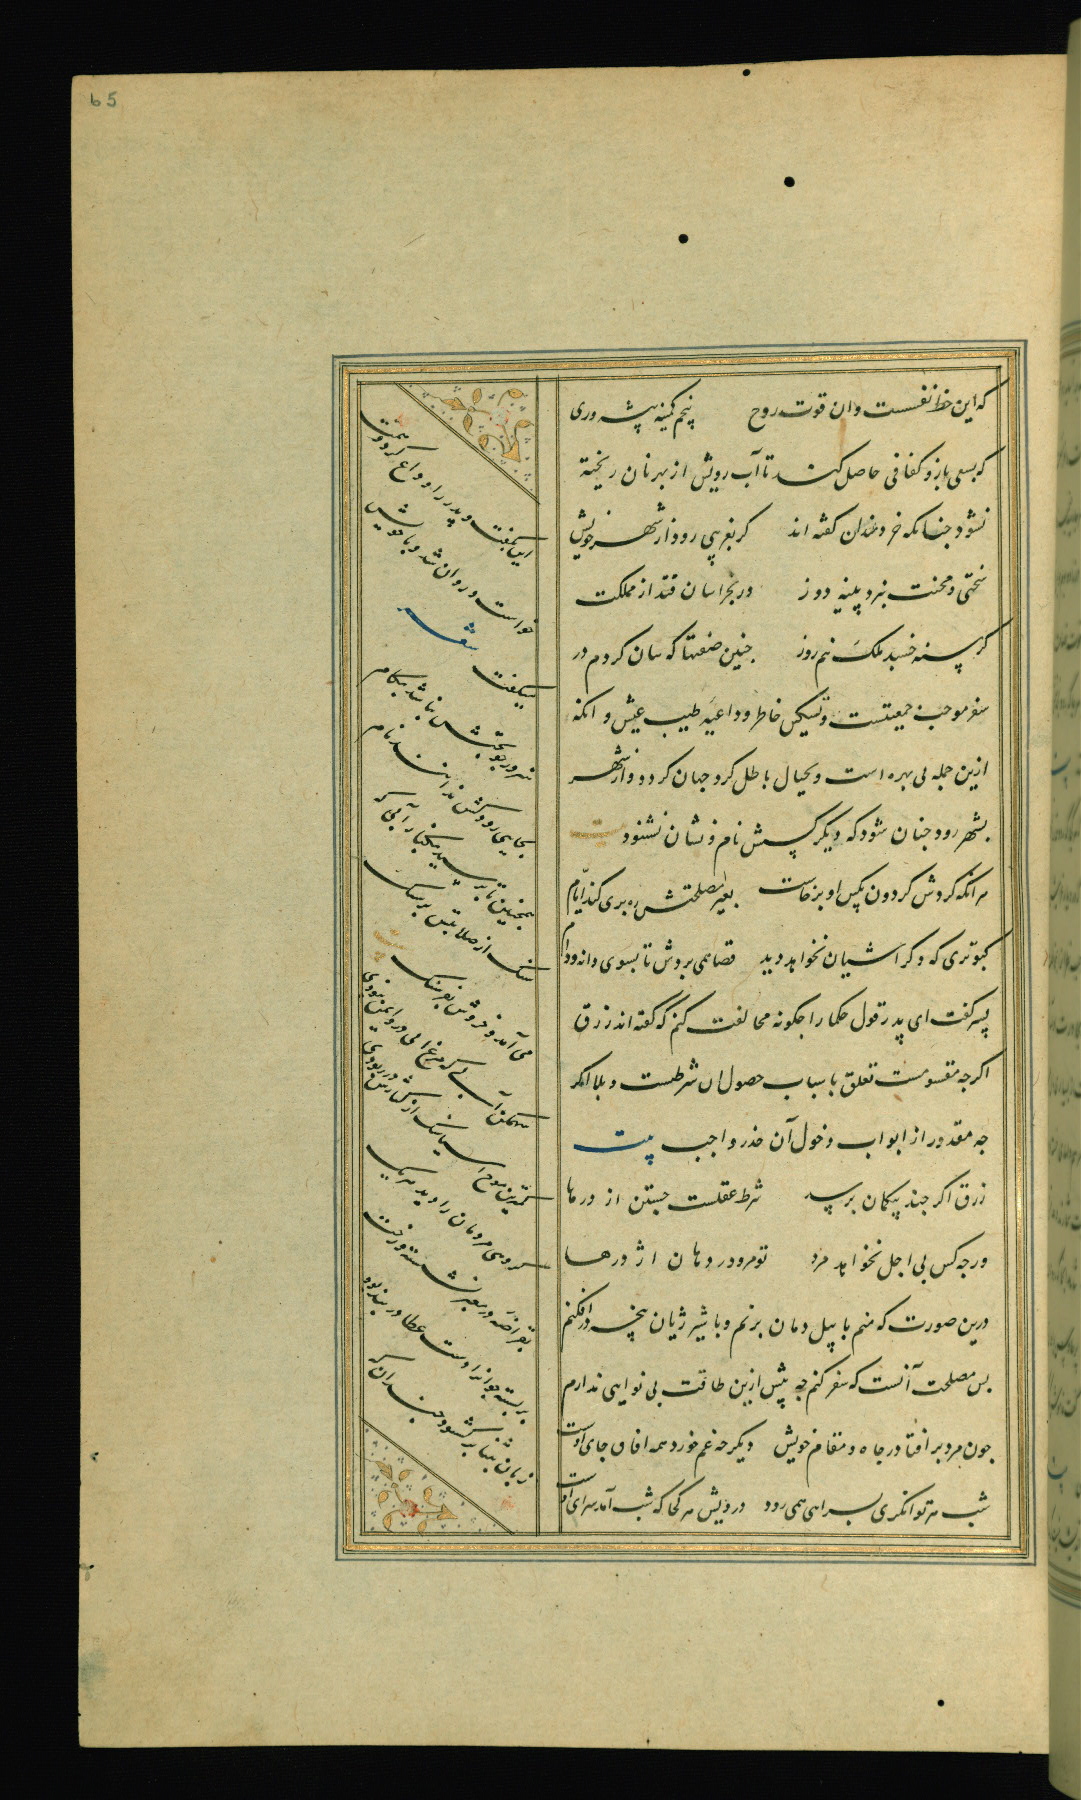 65
که این حظ نفسست وان قوت روح پنجم کمینه پیشه وری
که بسعی بازو کفافی حاصل کند تا آب رویش از بهر نان ریخته
نشود چنانکه خردمندان گفته اند گر بغریبی رود از شهر خویش
سختی و محنت نبرد پینه دوز ور بخرابی فتد از مملکت
گرسنه خسبد ملک نیم روز چنین صفتها که بیان کردم در
سفر موجب جمعیتست و تسکین خاطر و داعیه طیب عیش و انکه
ازین جمله بی بهره است و بخیال باطل گرد جهان گردد و از شهر
بشهر رود چنان شود که دیگر کسش نام و نشان نشنود بیت
هر انکه گردش گردون بکین او برخاست بغیر مصلحتش ره بری کند ایام
کبوتری که دگر آشیان نخواهد دید قضا همی بردش تا بسوی دانه و دام
پسر گفت ای پدر قول حکما را چگونه مخالفت کنم که گفته اند رزق
اگرچه مقسومست تعلق باسباب حصول ان شرطست و بلا اگر
چه مقدور از ابواب دخول آن حذر واجب بیت
رزق اگر چند بیگمان برسد شرط عقلست جستن از درها
ورچه کس بی اجل نخواهد مرد تو مرو در دهان اژدرها
درین صورت که منم با پیل دمان بزنم و با شیر ژیان پنجه درافکنم
پس مصلحت آنست که سفر کنم چه بیش ازین طاقت بی نوایی ندارم
چون مرد برافتاد ز جاه و مقام خویش دیگر چه غم خورد همه افاق جای اوست
شب هر توانگری بسرایی همی رود درویش هر کجا که شب آمد سرای اوست
این بگفت و پدر را وداع کرد و همت
خواست و روان شد و با خویش
میگفت شعر
هنرور چو بختش نباشد بکام
بجایی رود کش ندانند نام
همچنین تا برسید بکنار آبی که
سنگ از صلابتش بر سنگ
می آمد و خروش بفرسنگ بیت
سهمگن آبی که مرغابی درو ایمن نبودی
کمترین موج آسیاسنگ از کنارش در ربودی
گروهی مردمان را دید هر یک
بقراضه در معبر نشسته و رخت
بر بسته جوانرا دست عطا در بند بود
زبان ثنا برکشود چندان که